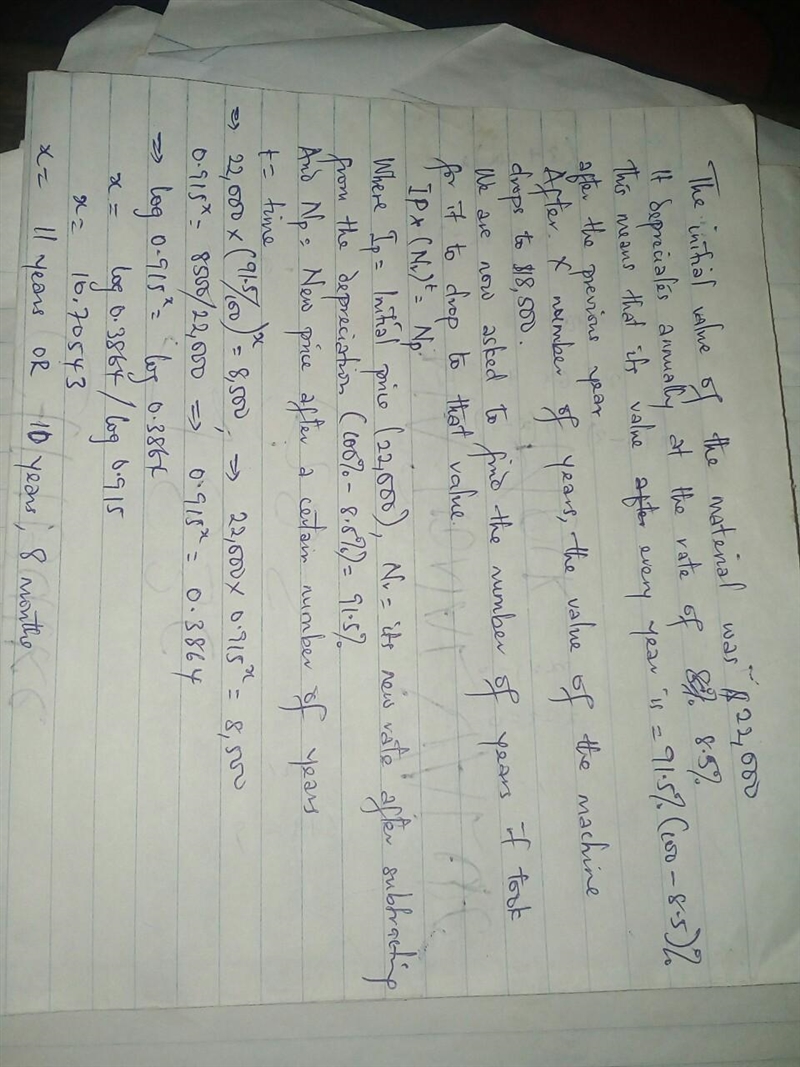 The initial value of the material was $22,000
It depreciates annually at the rate of 8.5%
this means that its value after every year is = 91.5% (100 - 8.5)%
after the previous year
After x number of years, the value of the machine
drops to $8,500.
We are now asked to find the number of years it took
for it to drop to that value.
Ip x (Nr)^t = Np
Where Ip = Initial price (22,000), Nr = its new rate after subtracting
from the depreciation (100% - 8.5%) = 91.5%
And Np = New price after a certain number of years
t = time
⇒ 22,000 x (91.5/100)^x = 8,500, ⇒ 22,000 x 0.915^x = 8,500
0.915^x = 8500/22,000 ⇒ 0.915^x = 0.3864
⇒ log 0.915^x = log 0.3864
x = log 0.3864 / log 0.915
x = 10.70543
x = 11 years OR 10 years, 8 months